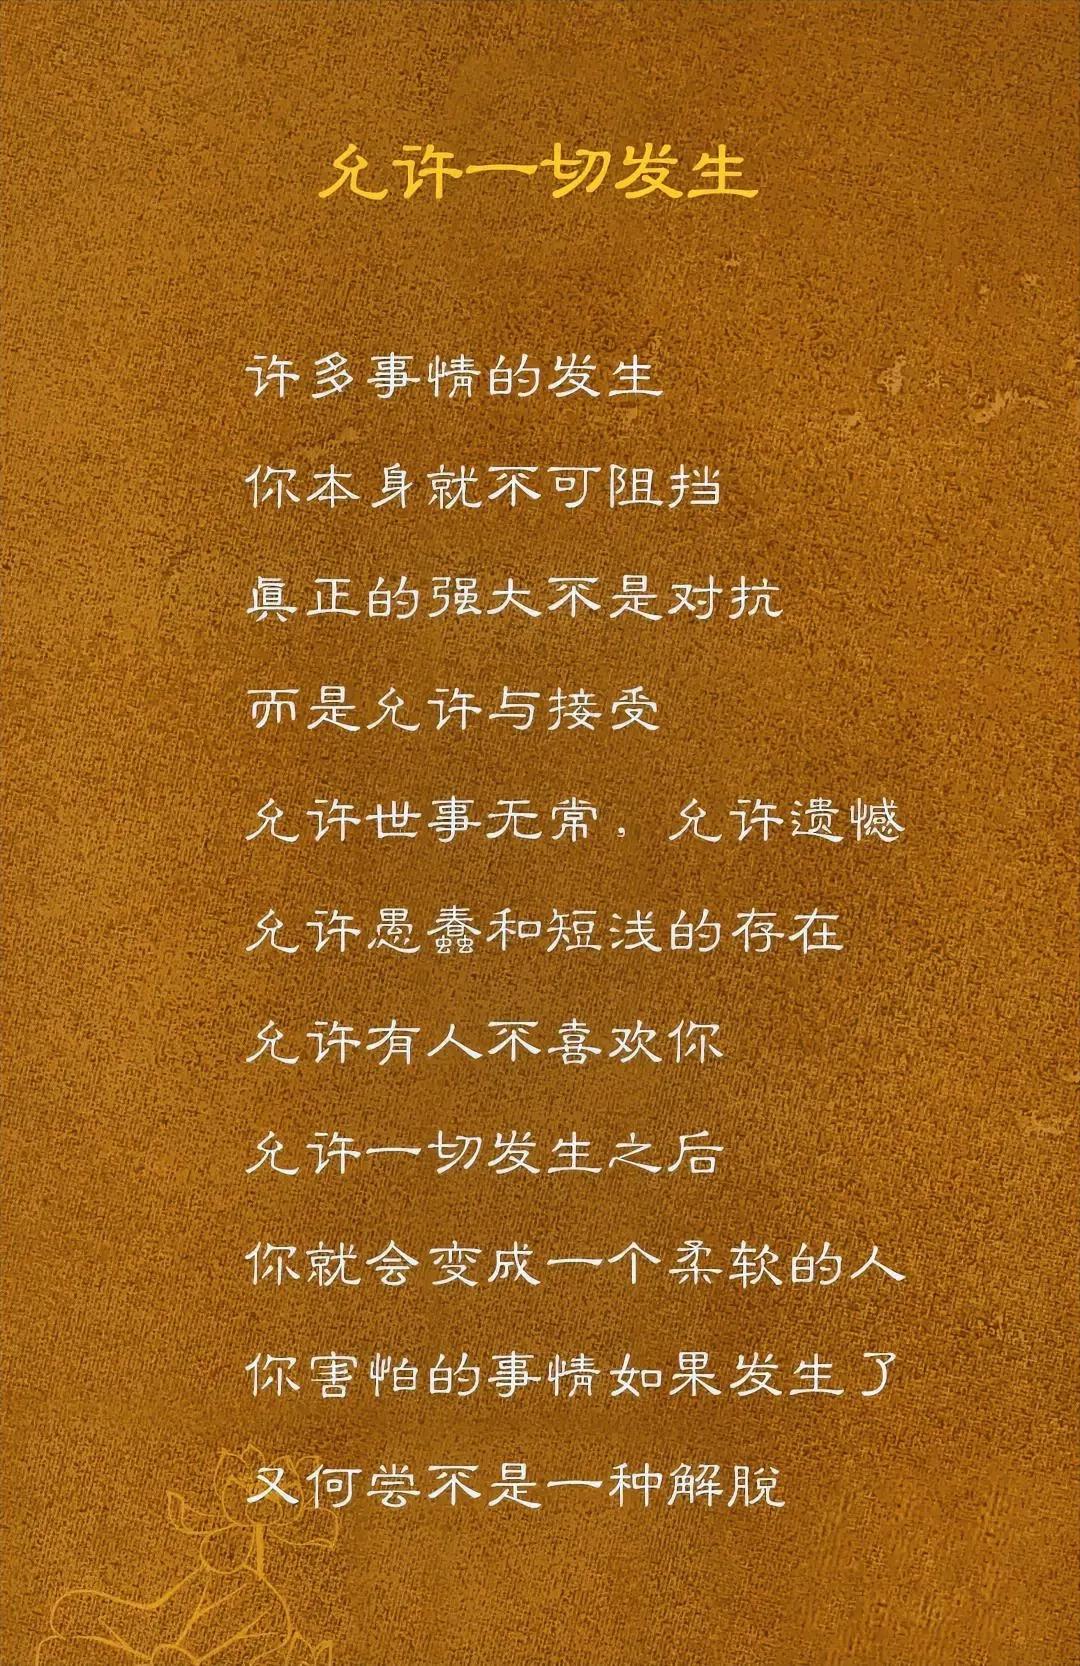 允许一切发生
许多事情的发生
你本身就不可阻挡
真正的强大不是对抗
而是允许与接受
允许世事无常，允许遗憾
允许愚蠢和短浅的存在
允许有人不喜欢你
允许一切发生之后
你就会变成一个柔软的人
你害怕的事情如果发生了
又何尝不是一种解脱